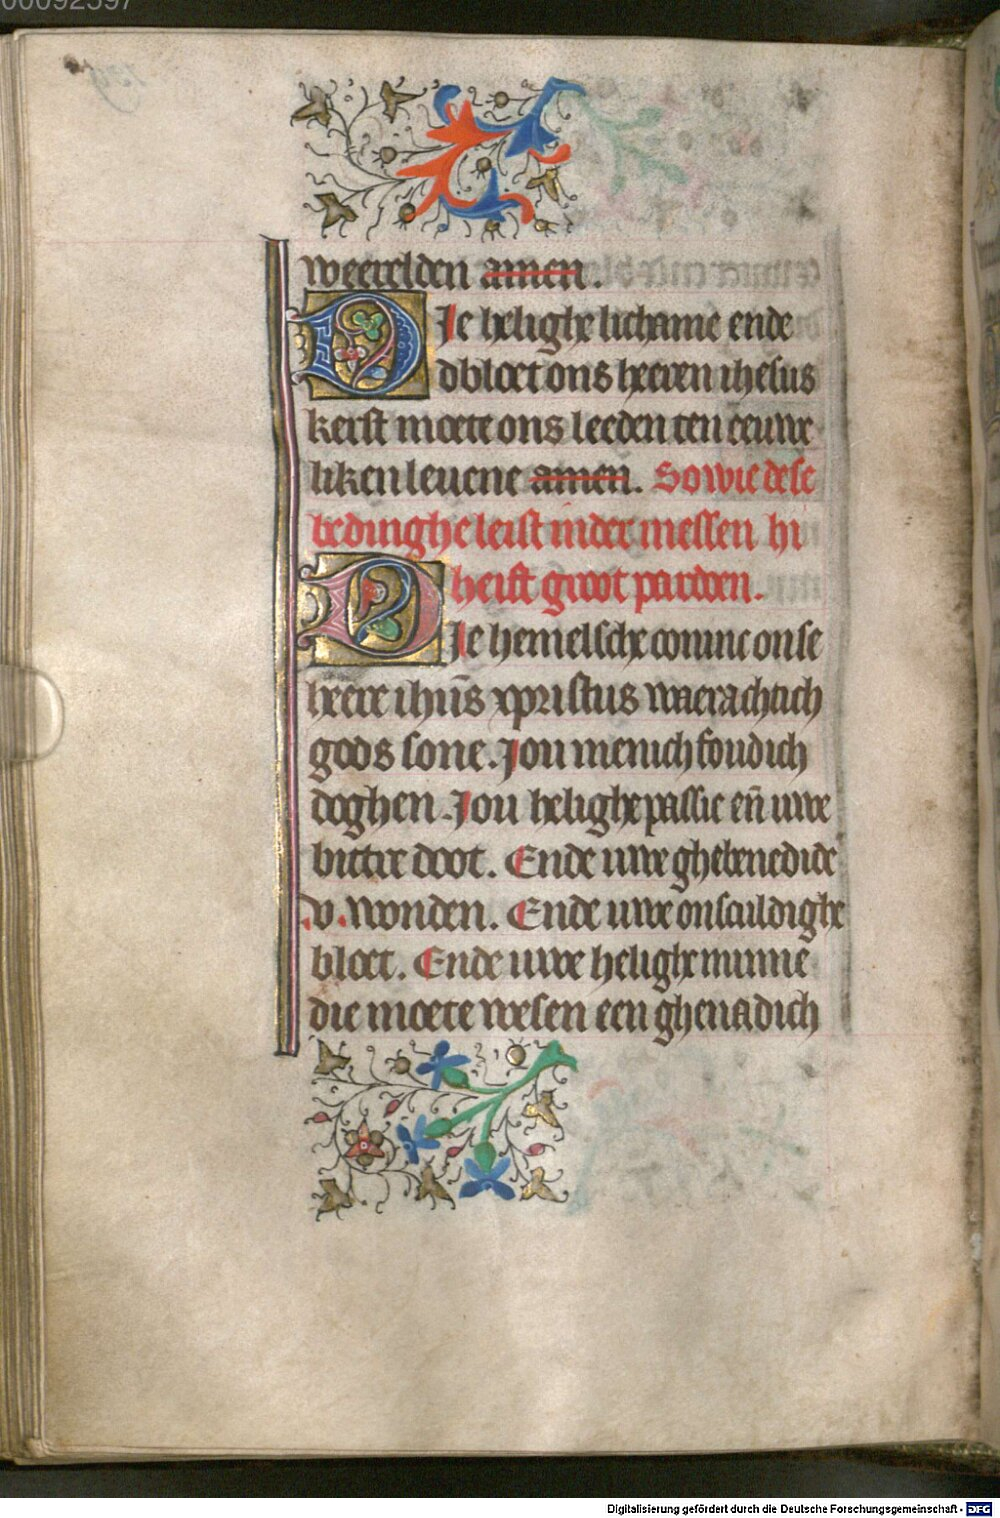 00092597
weerelden amen.
DJe helighe lichame ende
dbloet ons heeren ihesus
kerst moete ons leeden ten eeuwe
liken leuene amen. So wie dese
bedinghe leist in der messen hi
heift groot pardoen.
DJe hemelsche coninc onse
heere ihūs xpristus waerachtich
gods sone. Jou menichfoudich
doghen. Jou helighe passie eñ uwe
bitter doot. Ende uwe ghebenedide
.v. wonden. Ende uwe onsculdighe
bloet. Ende uwe helighe mīnne
die moete wesen een ghenadich
Digitalisierung gefördert durch die Deutsche Forschungsgemeinschaft - DFG